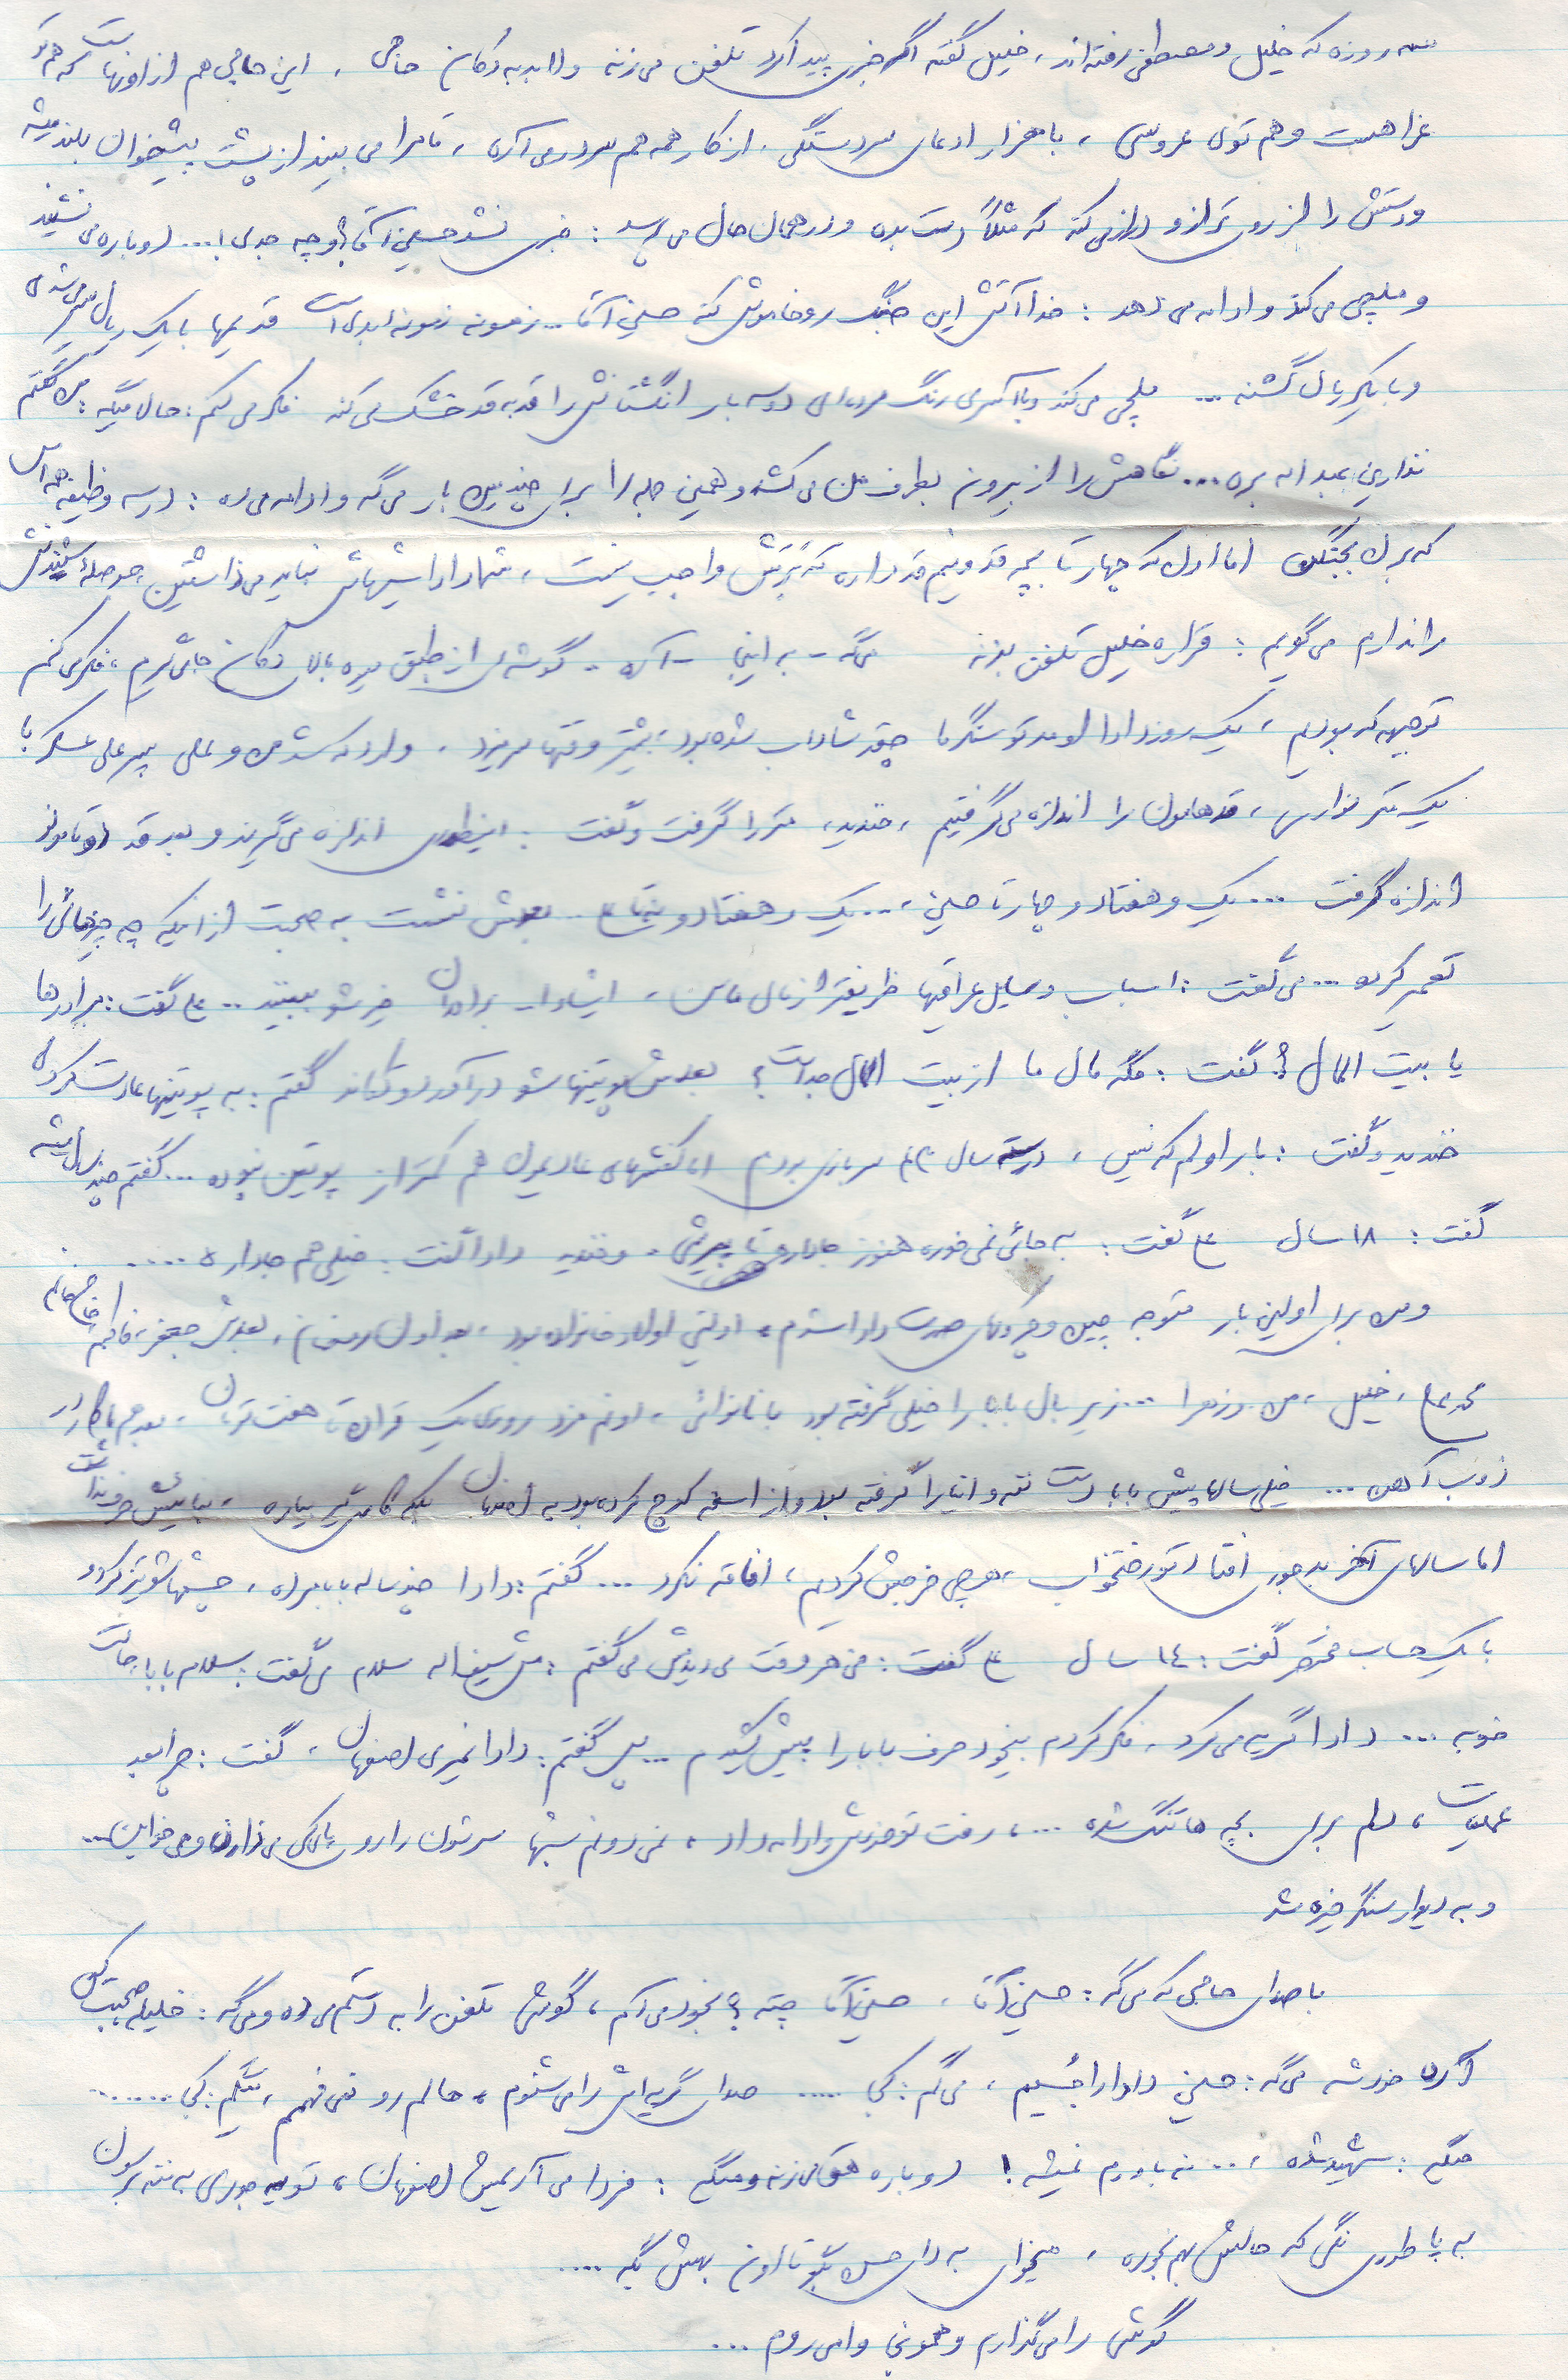 سه روزه که خلیل و مصطفی رفته‌اند، خلیل گفته اگر خبری پیدا کرد تلفن می‌زنه ولابد به دکان حاجی، این حاجی هم از اونهاست که هم تو
عزا هست و هم توی عروسی، با هزار ادعای سردستگی. از کار همه هم سر در می‌آره، تا مرا می‌بیند از پشت پیشخوان بلند میشه
و دستش را از روی ترازو دراز می‌کنه که مثلاً دست بده و در همان حال می‌پرسد: خبری نشد حسین آقا؟ و چه جدی!... دوباره می‌نشیند
و ملچی می‌کند و ادامه می‌دهد: خدا آتش این جنگ رو خاموش کنه حسین آقا... زمونه نمونه ابدی است قدیمها با یک ریال سیر می‌شدی
و با یک ریال گشنه... ملچی می‌کند و با آکبری رنگ مرده‌ای دو سه بار انگشتانش را قد به قد خشک می‌کنه فکر می‌کنم: حالا میگه: من گفتم
نذارین عبداله بره... نگاهش را از بیرون بطرف من می‌کشد و همین جمله را برای چندمین بار می‌گه و ادامه می‌ده: درسه وظیفه همه‌اس
که برن بجنگن اما اون که چهار تا بچه قد و نیم قد داره که برش واجب نیست، شما داداشیهاش نباید می‌ذاشتین حوصله شنیدنش
را ندارم می‌گویم: قراره خلیل تلفن بزنه می‌گه - به اینجا - آره - گوشه‌ای از طبق میوه بالا دکان جای گیرم، فکر می‌کنم
توجبهه که بودیم، یک روز دادا اومد تو سنگر ما چقدر شاداب شده بود، بیشتر وقتها می‌زد. وارد که شد من و علی پسر علی عسکر با
یک متر نواری، قدهامون را اندازه می‌گرفتیم، خندید، متر را گرفت و گفت: اینطوری اندازه می‌گیرند و بعد قد دوتامونو
اندازه گرفت... یک و هفتاد و چهارتا حسین،... یک و هفتاد و پنج تا ع.. بعدش نشست به صحبت از اینکه چه چیزهائی را
تعمیر کرده... می‌گفت: اسباب وسایل عراقیها ظریفتر از مال ماس، ایشاءا.. برادران خیرشو ببینند.. ع گفت: برادرها
یا بیت المال؟ گفت: مگه مال ما از بیت المال جداست؟ بعدش پوتینهاشو درآورد و تکاند گفتم: به پوتینها عادت کردی
خندید و گفت: بار اولم که نیس، درسته سال سربازی بودم اما کفشهای عادیمون هم کمتر از پوتین نبوده... گفتم چند سال پیشه
گفت: ۱۸ سال ع گفت: به جائی نمی‌خوره هنوز جا داره تا پیرشی. و خندید دادا گفت: خیلی هم جا داره....
و من برای اولین بار متوجه چین و چروکهای صورت دادا شدم، اولین اولاد خانواده بود، بعد اون، بعدش جعفر، فاطمه،
محمدعلی، خلیل، من و زهرا... زیر بال بابا را خیلی گرفته بود با نانوائی، اونم مزد روزی یک قران تا هفت تومان، بعد هم با کار در
ذوب آهن... خیلی سالها پیش بابا دست ننه و اینا را گرفته بود و از اسفه کوچ کرده بود به اصفهان بلکه کاری گیر بیاره، بنائیش حرف نداشت
اما سالهای آخر بدجوری افتاد تو رختخواب، هرچی خرجش کردیم، افاقه نکرد... گفتم: دادا چند ساله بابا مرده، چشمهاشو تیز کرد و
با یک حساب مختصر گفت: ۱۴ سال ع گفت: من هر وقت می‌دیدمش می‌گفتم: مش سیف‌اله سلام می‌گفت: سلام بابا جانت
خوبه... دادا گریه می‌کرد، فکر کردم بیخود حرف بابا را پیش کشیدم... پس گفتم: دادا نمیری اصفهان، گفت: چرا بعد
عملیات، دلم برای بچه ها تنگ شده...، رفت تو خودش و ادامه داد، نمی‌دونم شبها سرشون را رو پای کی می‌ذارن و می‌خوابن...
و به دیوار سنگر خیره شد
با صدای حاجی که می‌گه: حسین آقا، حسین آقا چته؟ بخود می‌آم، گوشی تلفن را به دستم می‌ده و می‌گه: خلیله صحبت کن
آره خودشه می‌گه: حسین دادا را جستیم، می‌گم: کی ..... صدای گریه‌اش را می‌شنوم، حالم رو نمی‌فهمم، میگم: کی........
میگه: شهید شده،... نه باورم نمیشه! دوباره هق می‌زنه و میگه: فردا می‌آریمش اصفهان، تو یه جوری به ننه برسون
به پا طوری نگی که حالش بهم بخوره، میخوای به دای حسن بگو تا اون بهش بگه.....
گوشی را می‌گذارم و همونجا وا می‌روم...